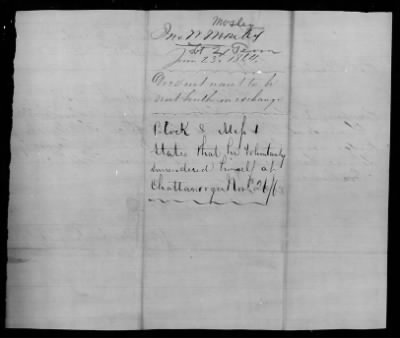 Mosley
Jno W Mosley
Tenn
Jan 23. 1864.
Does not want to be
sent South in exchange
Block 8 Mess 1
States that he voluntarily
surrendered himself at
Chattanooga Nov 26/63